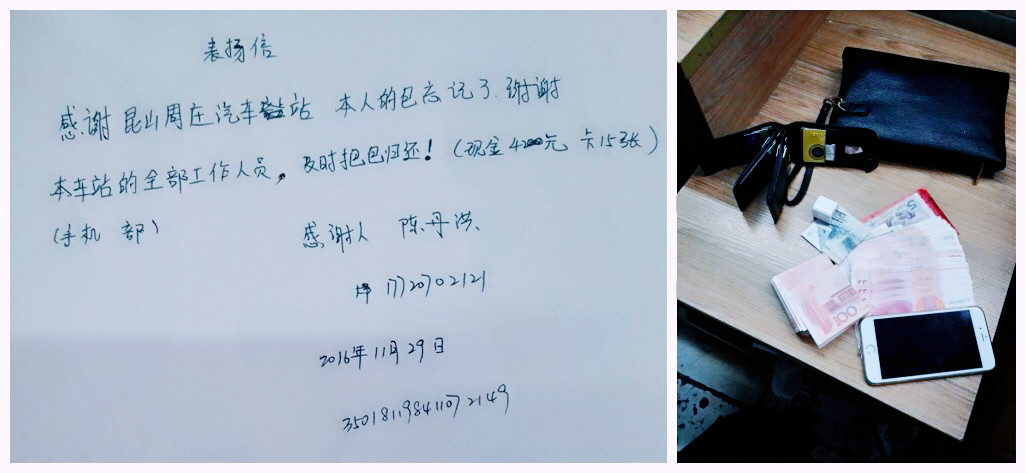 表扬信
感谢昆山周庄汽车站 本人的包忘记了.谢谢
本车站的全部工作人员,及时把包归还!(现金4200元 卡15张)
(手机 部)
感谢人 陈丹洪
17720702121
2016年11月29日
350181198411072149
100
5